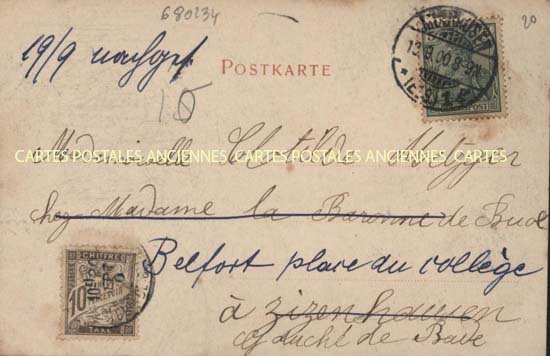 680234
20
19/9 nachges
POSTKARTE
13.9.00.8-9N.
10
Mademoiselle Clotilde Metzger
CARTES POSTALES ANCIENNES CARTES POSTALES ANCIENNES CARTES
chez Madame la Baronne de Buol
Belfort place du collège
à Zizenhausen
Gd Duché de Bade
CHIFFRE
10
TAXE